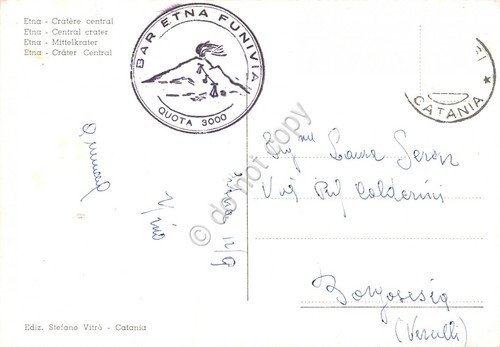 Etna - Cratère central
Etna - Central crater
Etna - Mittelkrater
Etna - Cráter Central
BAR ETNA FUNIVIA
QUOTA 3000
CATANIA
do not copy
Laura
Via Calderini
Borgosesia
(Vercelli)
12/9
Ediz. Stefano Vitrò - Catania